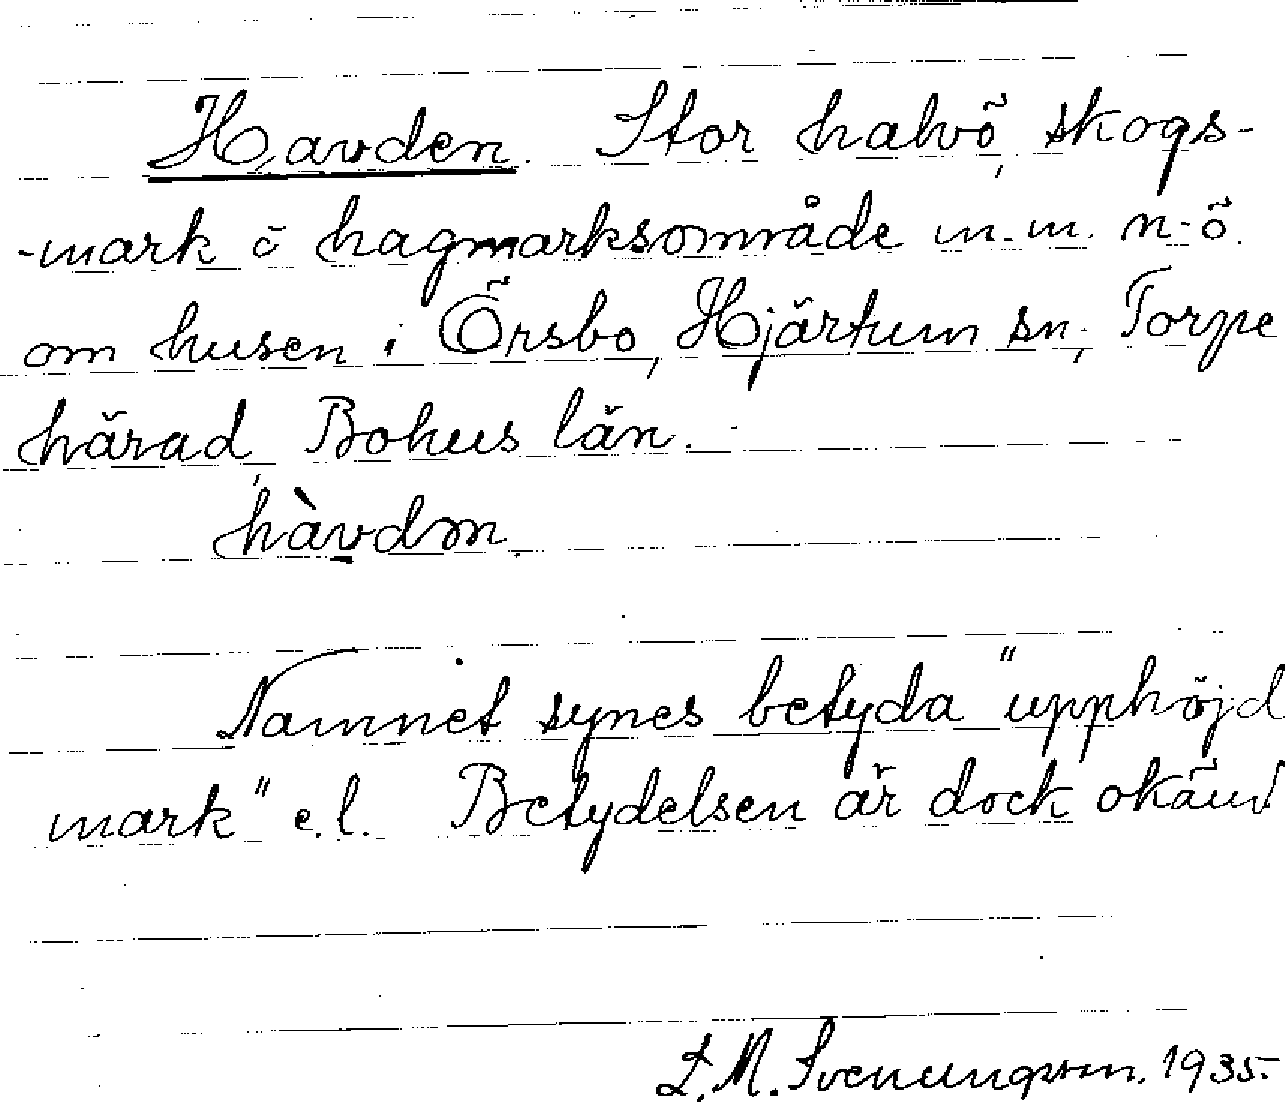 Havden. Stor halvö, skogs-
-mark o hagmarksområde m.m. n.ö.
om husen i Örsbo, Hjärtum sn, Torpe
härad, Bohus län.
hàvdn
Namnet synes betyda "upphöjd
mark" e.l. Betydelsen är dock okänd
L.M. Svenungsson. 1935.